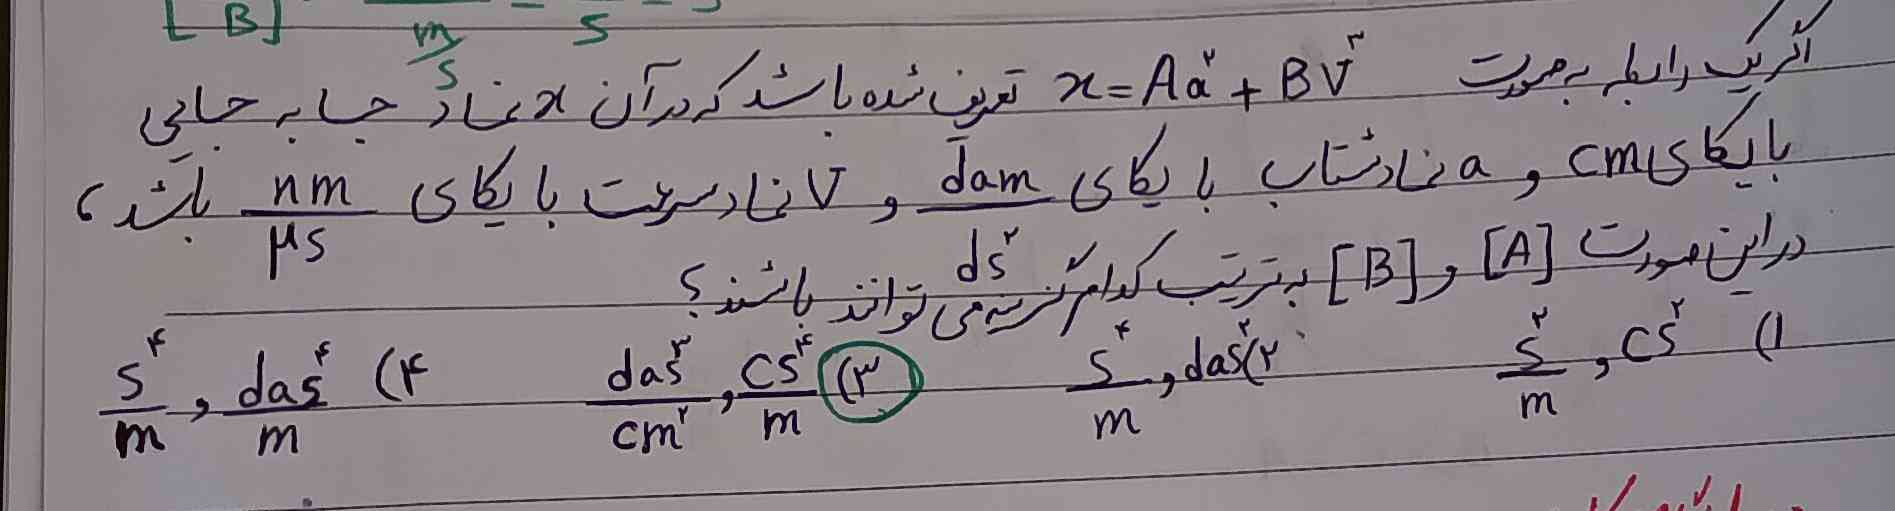 [B] m/s = /s
اگر یک رابطه به صورت x = Aa² + BV³ تعریف شده باشد که در آن x نماد جا به جایی
با یکای cm و a نماد شتاب با یکای dam/ds² و V نماد سرعت با یکای nm/μs باشد،
در این صورت [A] و [B] به ترتیب کدام گزینه می توانند باشند؟
۱) cs², s²/m ۲) das², s⁴/m ۳) cs⁴/m, das³/cm² ۴) das⁴/m, s⁴/m